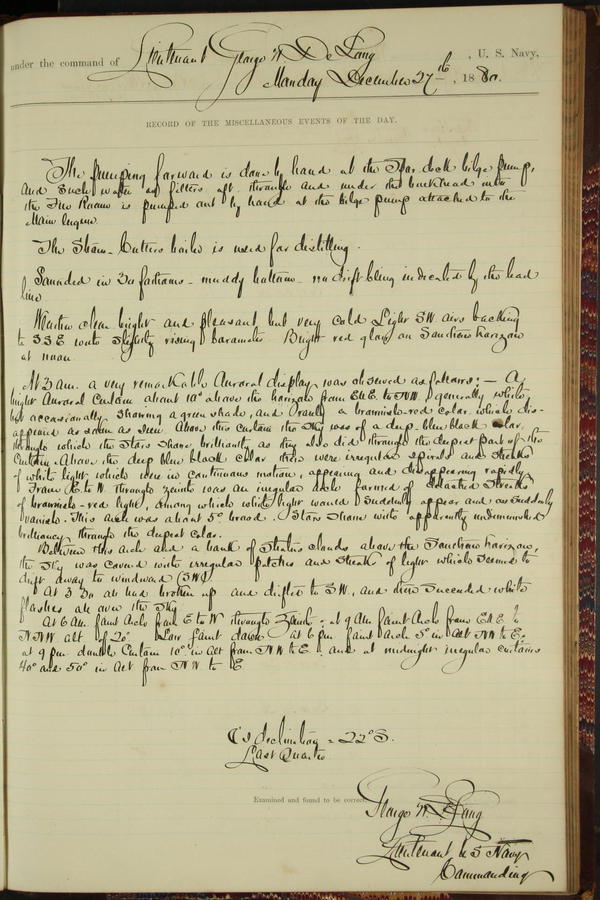 under the command of Lieutenant George W. De Long, U. S. Navy,
Monday December 27th, 1880.
RECORD OF THE MISCELLANEOUS EVENTS OF THE DAY.
The pumping forward is done by hand at the Spar deck bilge pump,
and such water as filters aft through and under the bulkhead into
the Fire Room is pumped out by hand at the bilge pump attached to the
Main Engine.
The Steam-Cutters boiler is used for distilling.
Sounded in 30 fathoms - muddy bottom - no drift being indicated by the lead
line.
Weather clear bright and pleasant but very cold Light SW. airs backing
to SSE with slightly rising barometer. Bright red glow on Southern horizon
at noon.
At 3 am. a very remarkable Auroral display was observed as follows: - A
bright Auroral Curtain about 10° above the horizon from ENE to NW generally white
but occasionally showing a green shade, and rarely a brownish-red color which dis-
appeared as soon as seen. Above this curtain the sky was of a deep blue black color,
through which the stars shone brilliantly as they also did through the deepest part of the
Curtain. Above the deep blue black color there were irregular spirals and streaks
of white light which were in continuous motion, appearing and disappearing rapidly.
From E to W through zenith was an irregular arch formed of detached streaks
of brownish-red light, among which white light would suddenly appear and as suddenly
vanish. This arch was about 5° broad. Stars shone with apparently undiminished
brilliancy through the deepest color.
Between this arch and a bank of stratus clouds above the Southern horizon,
the sky was covered with irregular patches and streaks of light which seemed to
drift away to windward (SW).
At 3 30 all had broken up and drifted to SW, and there succeeded white
flashes all over the sky.
At 6 AM faint Arch from E to W through Zenith; at 9 AM faint Arch from ENE to
NNW alt of 20° Low faint dawn at 6 pm faint Arch 5° in Alt NW to E.
at 9 pm double Curtain 10° in alt from NW to E and at midnight irregular curtains
40° and 50° in alt from NW to E
declination = 22° S.
Last Quarter
Examined and found to be correct.
George W. De Long
Lieutenant U S Navy
Commanding